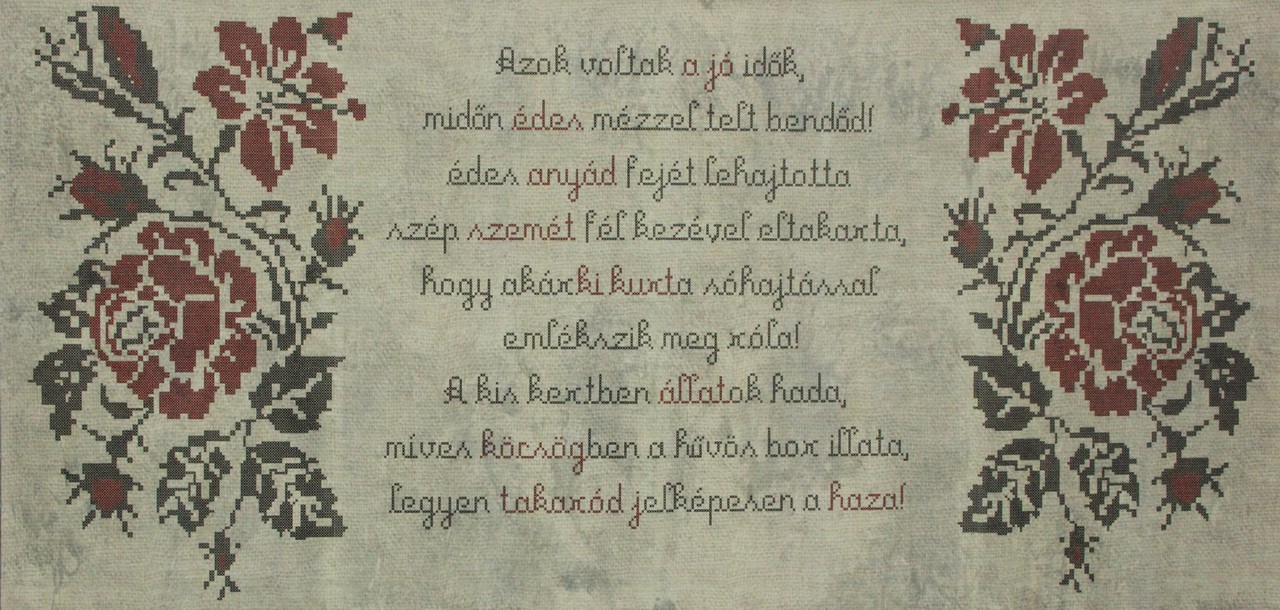 Azok voltak a jó idők,
midőn édes mézzel telt bendőd!
édes anyád fejét lehajtotta
szép szemét fél kezével eltakarta,
hogy akárki kurta sóhajtással
emlékszik meg róla!
A kis kertben állatok hada,
míves köcsögben a hűvös bor illata,
legyen takaród jelképesen a haza!